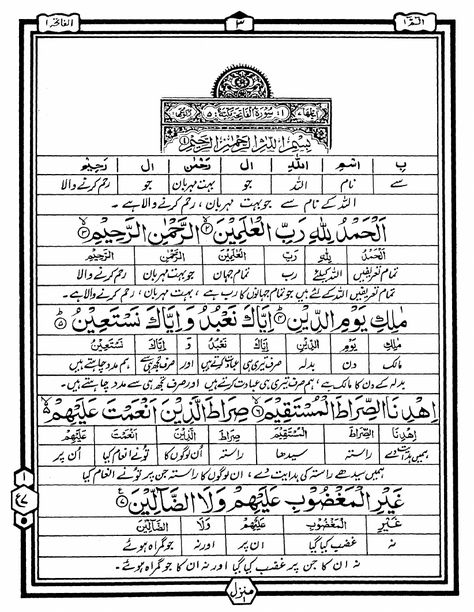 الٓمّٓ ١
٣
الفاتحة ١
١: سُوْرَةُ الْفَاتِحَةِ مَكِّيَّةٌ : ٥
بِسْمِ اللّٰهِ الرَّحْمٰنِ الرَّحِيْمِ
بِ اسْمِ اللّٰهِ ال رَحْمٰنِ ال رَحِيْمِ
سے نام اللہ جو بہت مہربان جو رحم کرنے والا
اللہ کے نام سے جو بہت مہربان، رحم کرنے والا ہے۔
اَلْحَمْدُ لِلّٰهِ رَبِّ الْعٰلَمِيْنَ ۙ﴿۲﴾ الرَّحْمٰنِ الرَّحِيْمِ ۙ﴿۳﴾
اَلْحَمْدُ لِلّٰهِ رَبِّ الْعٰلَمِيْنَ الرَّحْمٰنِ الرَّحِيْمِ
تمام تعریفیں اللہ کیلئے رب تمام جہان جو بہت مہربان رحم کرنے والا
تمام تعریفیں اللہ کے لئے ہیں جو تمام جہانوں کا رب ہے، بہت مہربان، رحم کرنے والا ہے۔
مٰلِكِ يَوْمِ الدِّيْنِ ﴿۴﴾ اِيَّاكَ نَعْبُدُ وَ اِيَّاكَ نَسْتَعِيْنُ ﴿۵﴾
مٰلِكِ يَوْمِ الدِّيْنِ اِيَّاكَ نَعْبُدُ وَ اِيَّاكَ نَسْتَعِيْنُ
مالک دن بدلہ صرف تیری ہی عبادت کرتے ہیں اور صرف تجھ ہی سے ہم مدد چاہتے ہیں
بدلہ کے دن کا مالک ہے، ہم صرف تیری ہی عبادت کرتے ہیں اور صرف تجھ ہی سے مدد چاہتے ہیں۔
اِهْدِنَا الصِّرَاطَ الْمُسْتَقِيْمَ ﴿۶﴾ صِرَاطَ الَّذِيْنَ اَنْعَمْتَ عَلَيْهِمْ
اِهْدِنَا الصِّرَاطَ الْمُسْتَقِيْمَ صِرَاطَ الَّذِيْنَ اَنْعَمْتَ عَلَيْهِمْ
ہمیں ہدایت دے راستہ سیدھا راستہ اُن لوگوں کا تُو نے انعام کیا اُن پر
ہمیں سیدھے راستہ کی ہدایت دے، ان لوگوں کا راستہ جن پر تُو نے انعام کیا
غَيْرِ الْمَغْضُوْبِ عَلَيْهِمْ وَلَا الضَّآلِّيْنَ ﴿۷﴾
غَيْرِ الْمَغْضُوْبِ عَلَيْهِمْ وَلَا الضَّآلِّيْنَ
نہ غضب کیا گیا ان پر اور نہ جو گمراہ ہوئے
نہ ان کا جن پر غضب کیا گیا اور نہ ان کا جو گمراہ ہوئے۔
١
٤٧
منزل ١